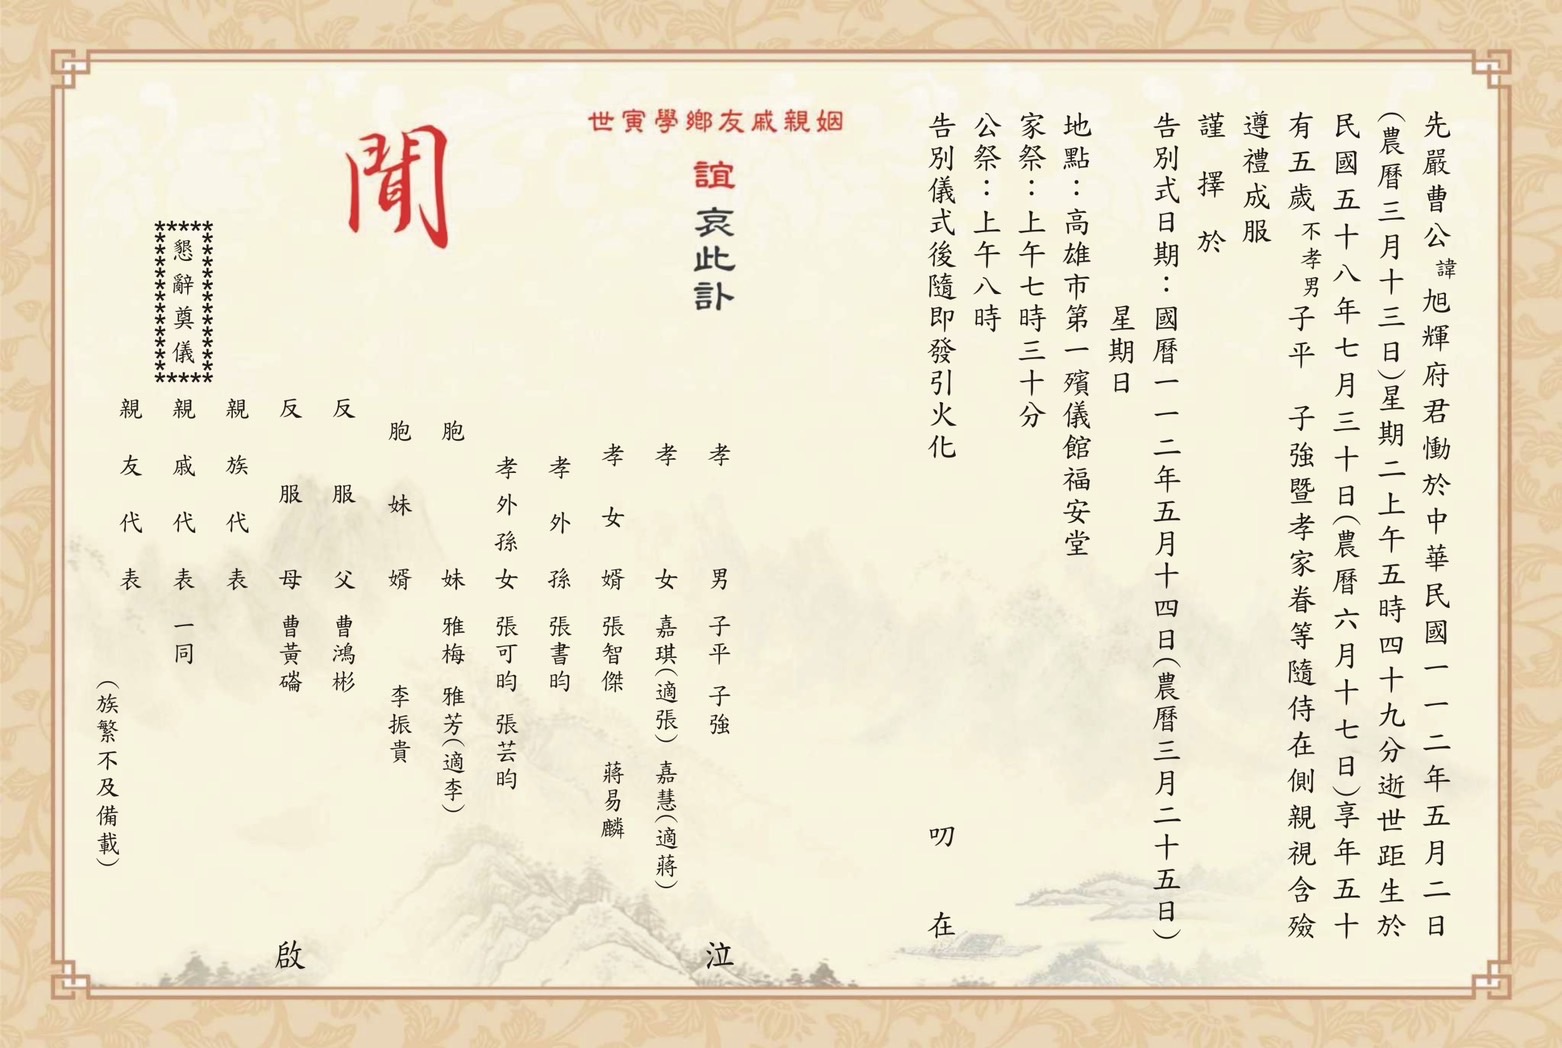 先嚴曹公諱旭輝府君慟於中華民國一一二年五月二日
(農曆三月十三日)星期二上午五時四十九分逝世距生於
民國五十八年七月三十日(農曆六月十七日)享年五十
有五歲不孝男子平 子強暨孝家眷等隨侍在側親視含殮
遵禮成服
謹擇於
告別式日期：國曆一一二年五月十四日(農曆三月二十五日)
星期日
地點：高雄市第一殯儀館福安堂
家祭：上午七時三十分
公祭：上午八時
告別儀式後隨即發引火化
叨在
世寅學鄉友戚親姻
誼
哀此訃
聞
孝男 子平 子強
孝女 嘉琪(適張) 嘉慧(適蔣)
孝女婿 張智傑 蔣易麟
孝外孫 張書昀
孝外孫女 張可昀 張芸昀
胞妹 雅梅 雅芳(適李)
胞妹婿 李振貴
反服父 曹鴻彬
反服母 曹黃碖
親族代表
親戚代表 一同
親友代表
(族繁不及備載)
泣
啟
懇辭奠儀